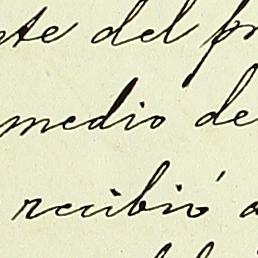 del
medio de
recibió